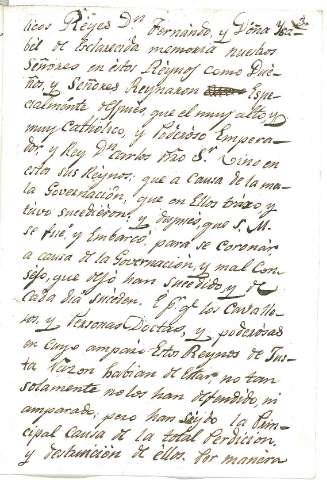 licos Reyes Dn Fernando, y Doña Ysa-
bel de Esclarecida memoria nuestros
Señores en estos Reynos como Due-
ños, y Señores Reynaron Espe-
cialmente despues, que el muy alto, y
muy Catholico, y Poderoso Empera-
dor, y Rey Dn Carlos nro Sr. Vino en
estos sus Reynos: que a causa de la ma-
la Governacion, que en Ellos truxo y
tuvo sucedieron: y despues, que S. M.
se fue, y Embarcó, para se coronar
a causa de la Governacion, y mal Con-
sejo, que dejó han sucedido, y de
cada dia suceden. E pr qe los Cavalle-
ros, y Personas Doctas, y poderosas
en cuyo amparo Estos Reynos de Jus-
ta razon habian de Estar no tan
solamente no los han defendido, ni
amparado, pero han seydo la Prin-
cipal Causa de la total Perdicion,
y destruicion de ellos. Por manera